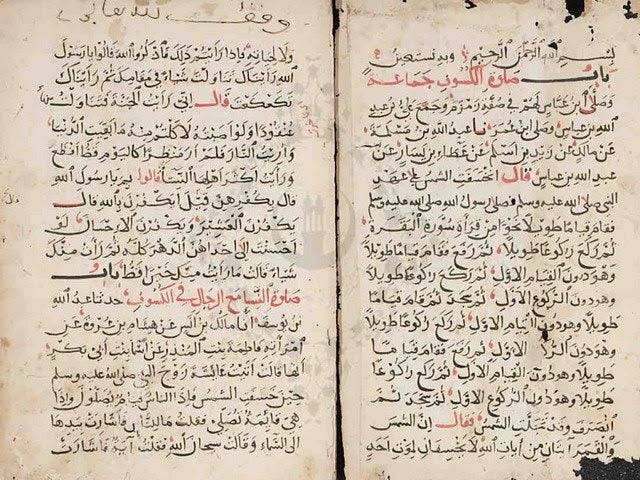 بسم الله الرحمن الرحيم وبه نستعين
باب صلوة الكسوف جماعة
وصلى ابن عباس لهم في صفة زمزم وجمع علي بن عبد
الله بن عباس وصلى ابن عمر نا عبد الله بن مسلمة
عن مالك عن زيد بن اسلم عن عطاء بن يسار عن
عبد الله بن عباس قال انخسفت الشمس على عهد
النبي صلى الله عليه وسلم فصلى رسول الله صلى الله عليه وسلم
فقام قياما طويلا نحوا من قراة سورة البقرة
ثم ركع ركوعا طويلا ثم رفع فقام قياما طويلا
وهو دون القيام الاول ثم ركع ركوعا طويلا
وهو دون الركوع الاول ثم سجد ثم قام قياما
طويلا وهو دون القيام الاول ثم ركع ركوعا طويلا
وهو دون الركوع الاول ثم رفع فقام قياما
طويلا وهو دون القيام الاول ثم ركع ركوعا
طويلا وهو دون الركوع الاول ثم سجد ثم
انصرف وقد تجلت الشمس فقال ان الشمس
والقمر ايتان من ايات الله لا يخسفان لموت احد
وقف لله تعالى
ولا لحياته فاذا رايتم ذلك فاذكروا الله قالوا يا رسول
الله رايناك تناولت شيا في مقامك ثم رايناك
تكعكعت قال اني رايت الجنة فتناولت
عنقودا ولو اصبته لاكلتم منه ما بقيت الدنيا
واريت النار فلم ار منظرا كاليوم قط افظع
ورايت اكثر اهلها النسا قالوا بم يا رسول الله
قال بكفرهن قيل ايكفرن بالله قال
يكفرن العشير ويكفرن الاحسان لو
احسنت الى احداهن الدهر كله ثم رات منك
شيا قالت ما رايت منك خيرا قط باب
صلوة النسا مع الرجال في الكسوف حدثنا عبد الله
بن يوسف انا مالك بن انس عن هشام بن عروة عن
امراته فاطمة بنت المنذر عن اسما بنت ابي بكر
انها قالت اتيت عائشة زوج النبي صلى الله عليه وسلم
حين خسفت الشمس فاذا الناس قيام يصلون واذا
هي قائمة تصلي فقلت ما للناس فاشارت بيدها
الى السماء وقالت سبحان الله فقلت اية فاشارت